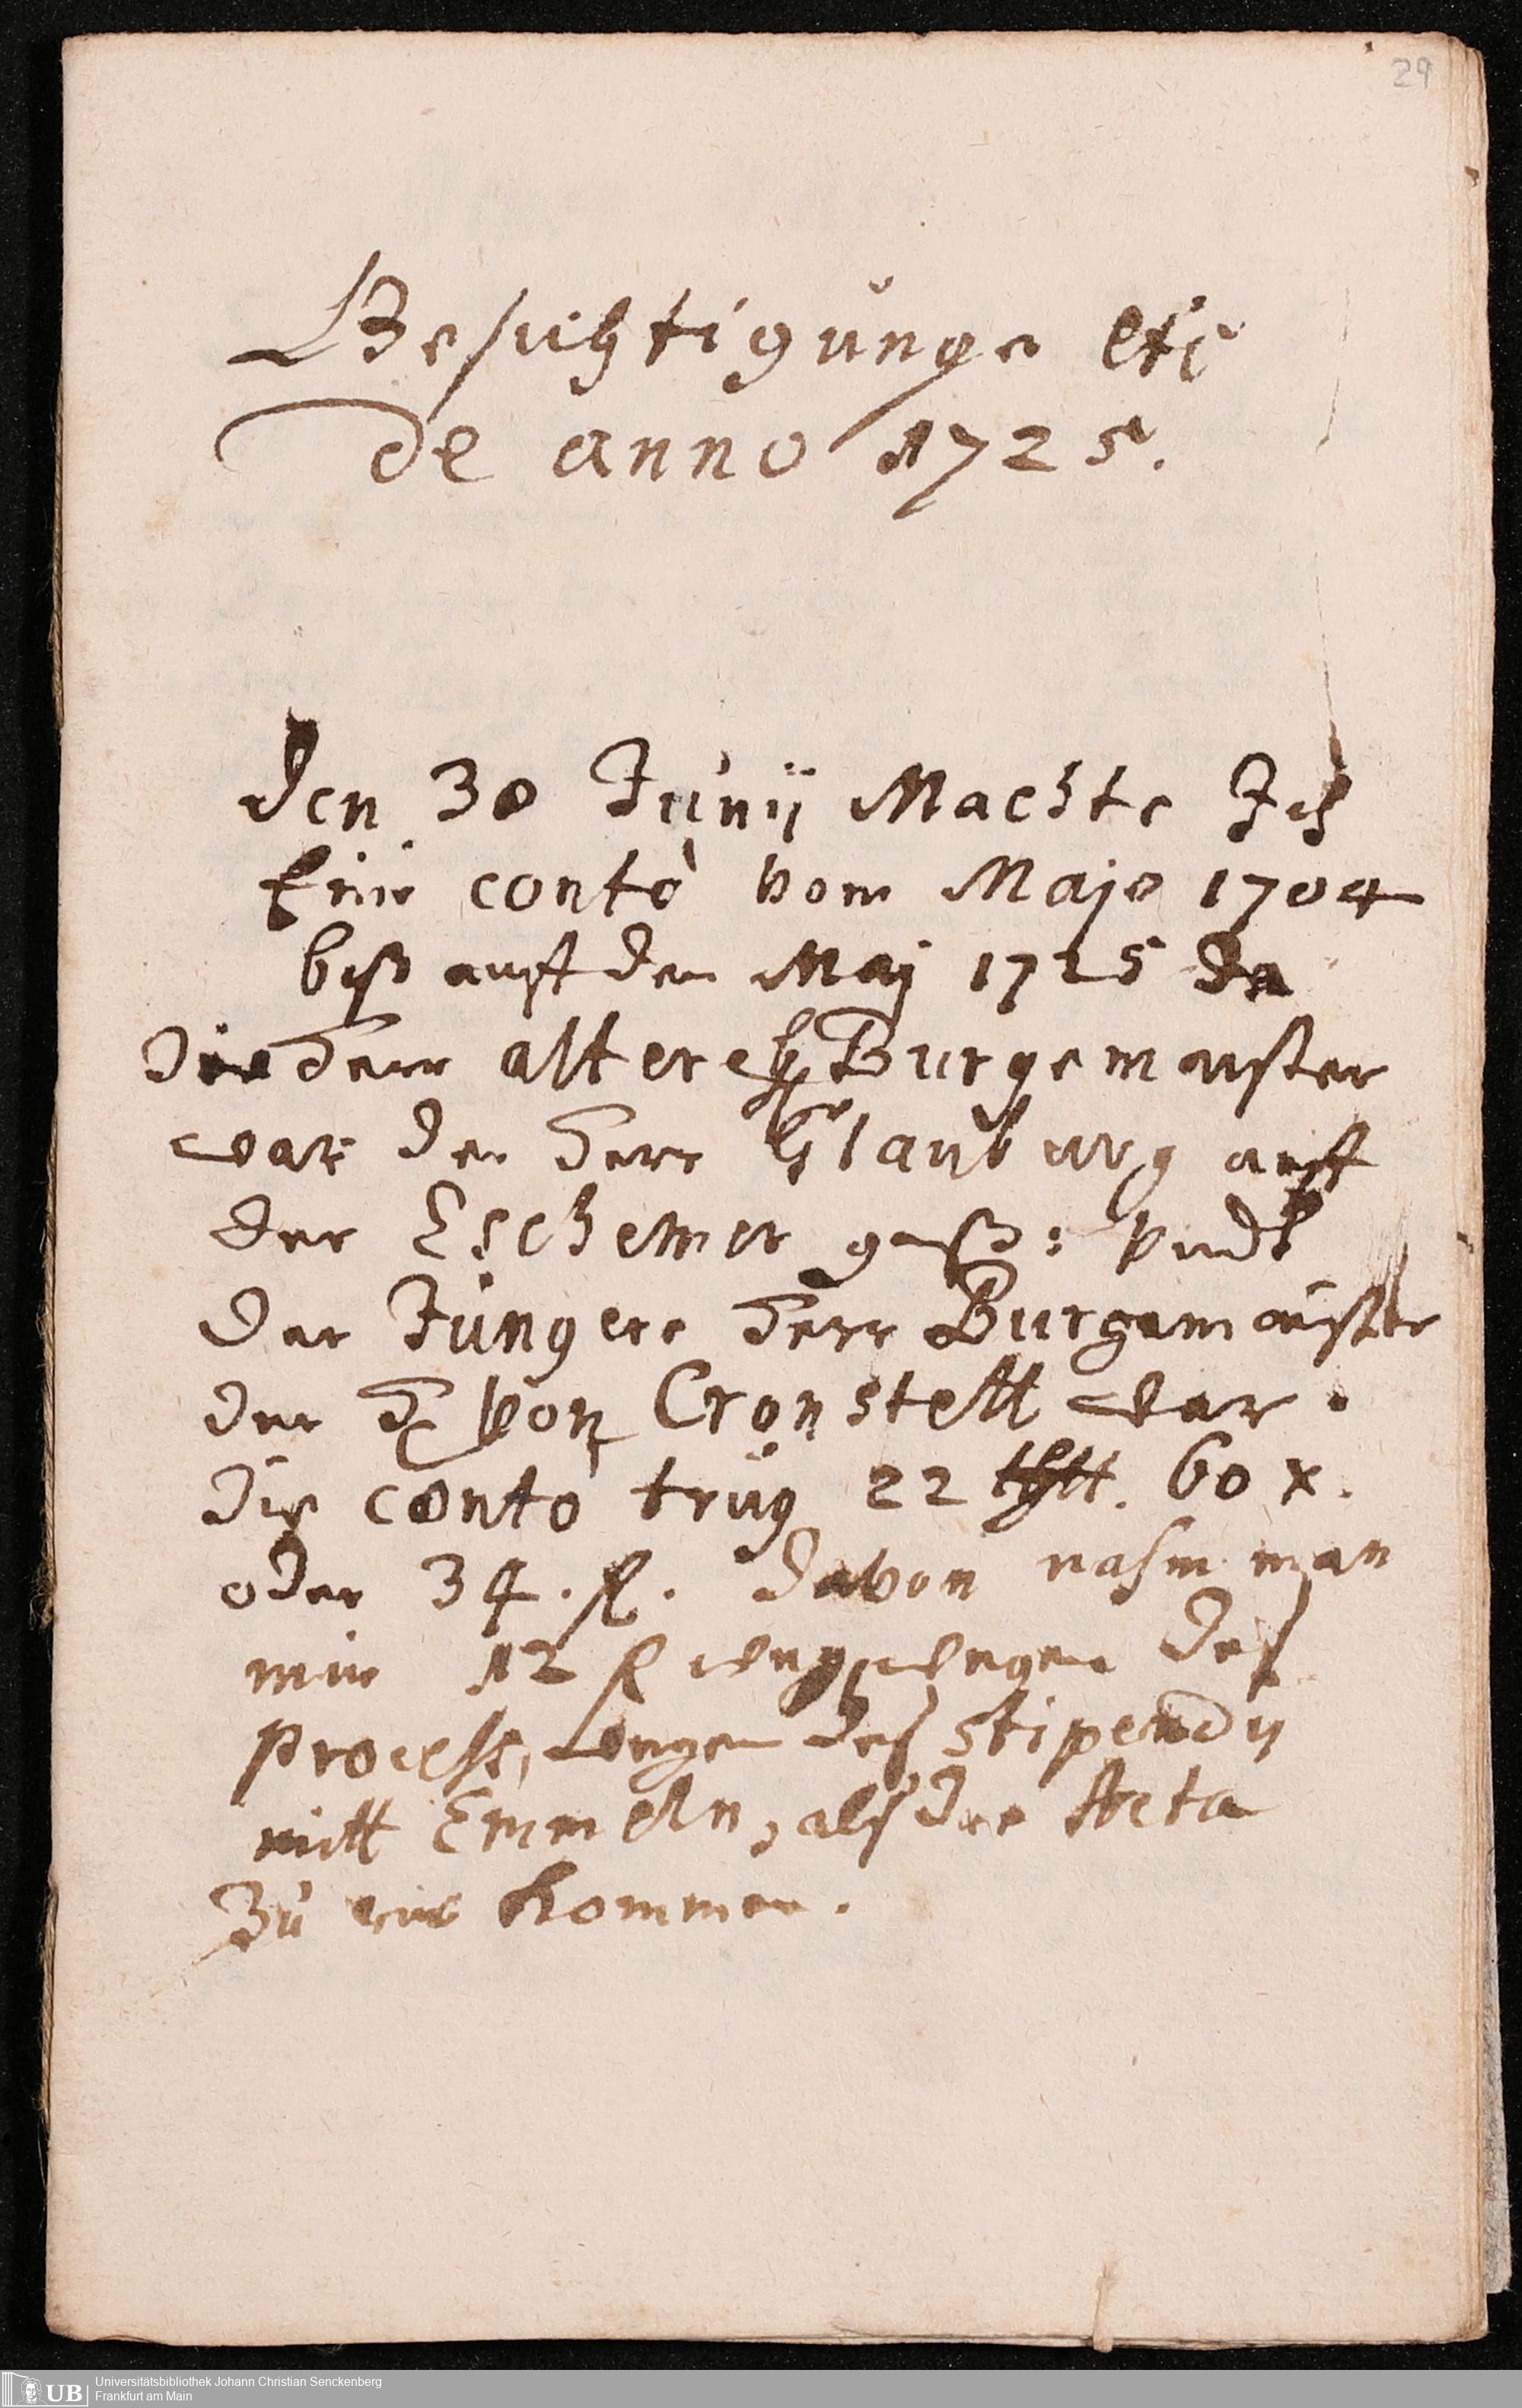 29
Besichtigunge etc
de anno 1725.
Den 30 Junii Machte Ich
Eine conto vom Majo 1704
biß auff den Maj 1725 da
die Herr altere H Burgemeister
war der Herr Glauburg auff
der Eschemer gaß: Undt
der Jüngere Herr Burgemeister
der H von Cronstett war.
die conto trug 22 thlr. 60 x.
oder 34. fl. davon nahm man
mir 12 fl weg wegen des
Process, wegen des stipendy
mitt Emmeln, alß die Acta
Zu mir kommen.
UB
Universitätsbibliothek Johann Christian Senckenberg
Frankfurt am Main